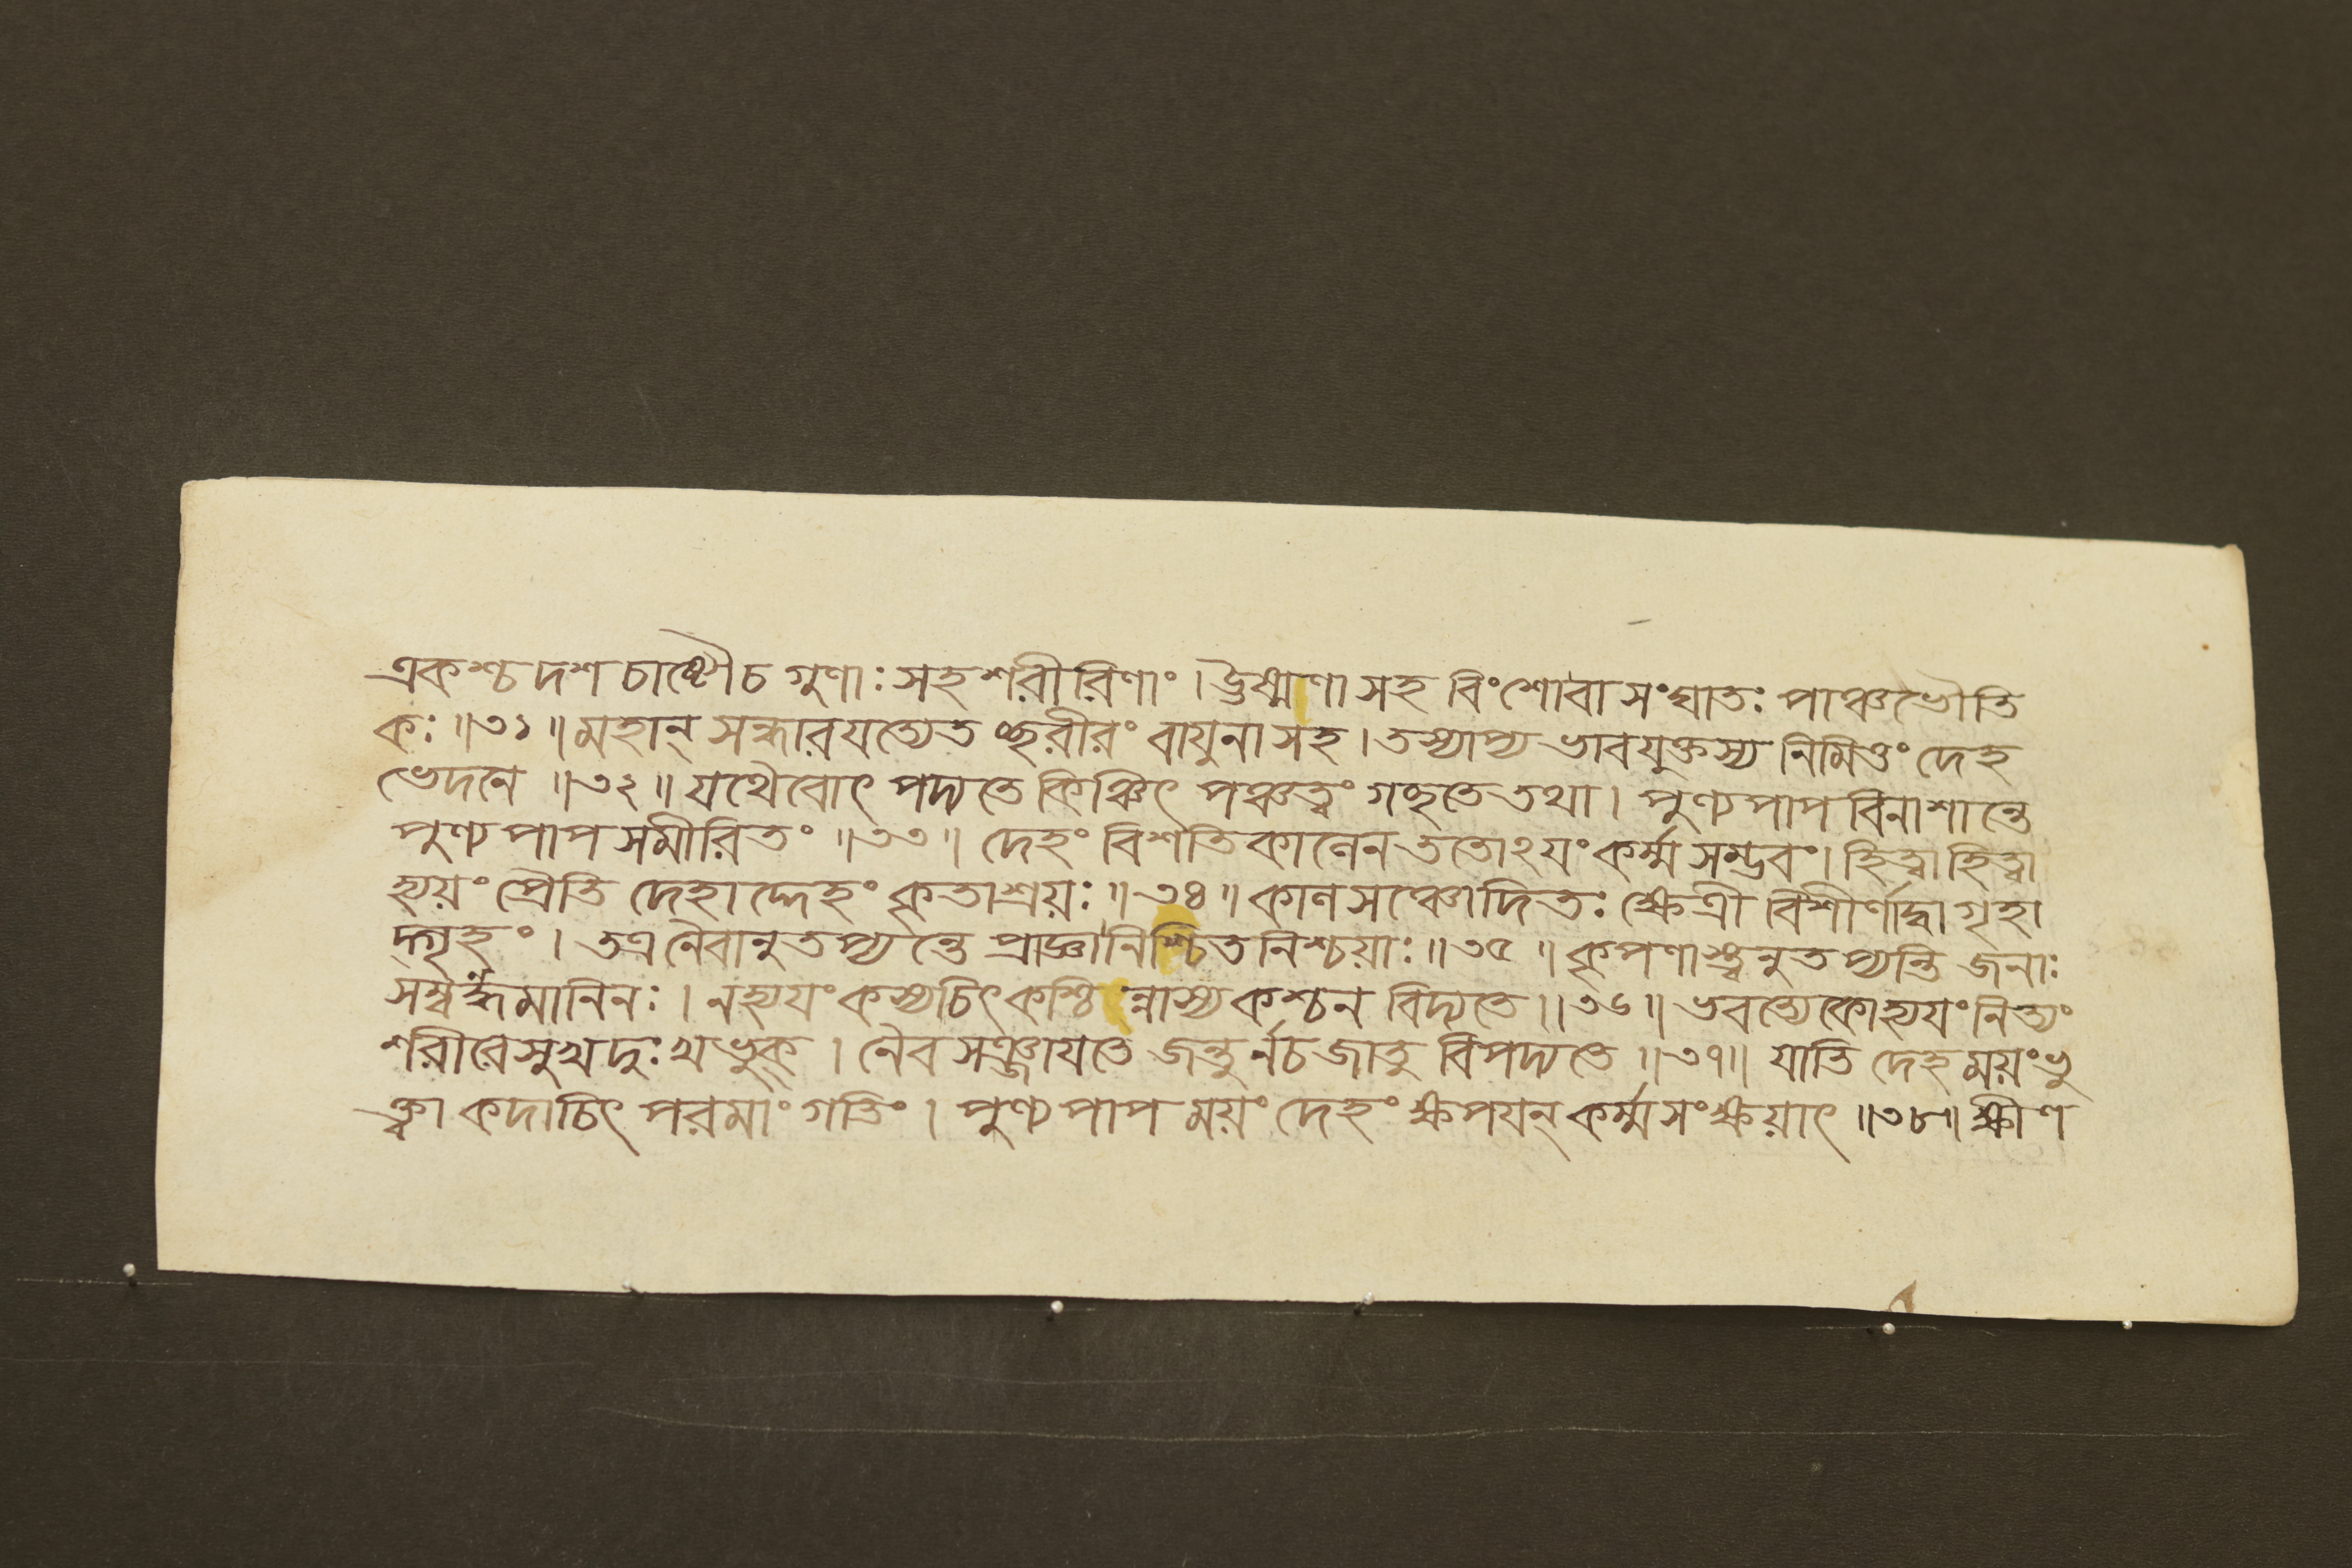 একশ্চ দশ চাষ্টৌ চ গুণাঃ সহ শরীরিণাং । উষ্মণা সহ বিংশোবা সংঘাতঃ পাঞ্চভৌতি
কঃ ॥৩১॥ মহান্ সন্ধারযত্যেতচ্ছরীরং বাযুনা সহ । তস্যাপ্য ভাবযুক্তস্য নিমিত্তং দেহ
ভেদনে ॥৩২॥ যথৈবোৎপদ্যতে কিঞ্চিৎ পঞ্চত্বং গচ্ছতে তথা । পুণ্যপাপবিনাশান্তে
পুণ্যপাপসমীরিতং ॥৩৩॥ দেহং বিশতি কালেন ততোঽযং কর্ম্মসম্ভবং । হিত্বা হিত্বা
হ্যয়ং প্রৈতি দেহাদ্দেহং কৃতাশ্রয়ঃ ॥৩৪॥ কালসঞ্চোদিতঃ ক্ষেত্রী বিশীর্ণাদ্বা গৃহা
দ্গৃহং । তত্র নৈবানুতপ্যন্তে প্রাজ্ঞা নিশ্চিতনিশ্চয়াঃ ॥৩৫॥ কৃপণাস্ত্বনুতপ্যন্তি জনাঃ
সম্বন্ধমানিনঃ । নহ্যযং কস্যচিৎ কশ্চিন্নাস্য কশ্চন বিদ্যতে ॥৩৬॥ ভবত্যেকোহ্যযং নিত্যং
শরীরে সুখদুঃখভুক্ । নৈব সঞ্জাযতে জন্তুর্নচ জাতু বিপদ্যতে ॥৩৭॥ যাতি দেহময়ং ভু
ক্ত্বা কদাচিৎ পরমাং গতিং । পুণ্যপাপময়ং দেহং ক্ষপযন্ কর্ম্মসংক্ষয়াৎ ॥৩৮॥ ক্ষীণ